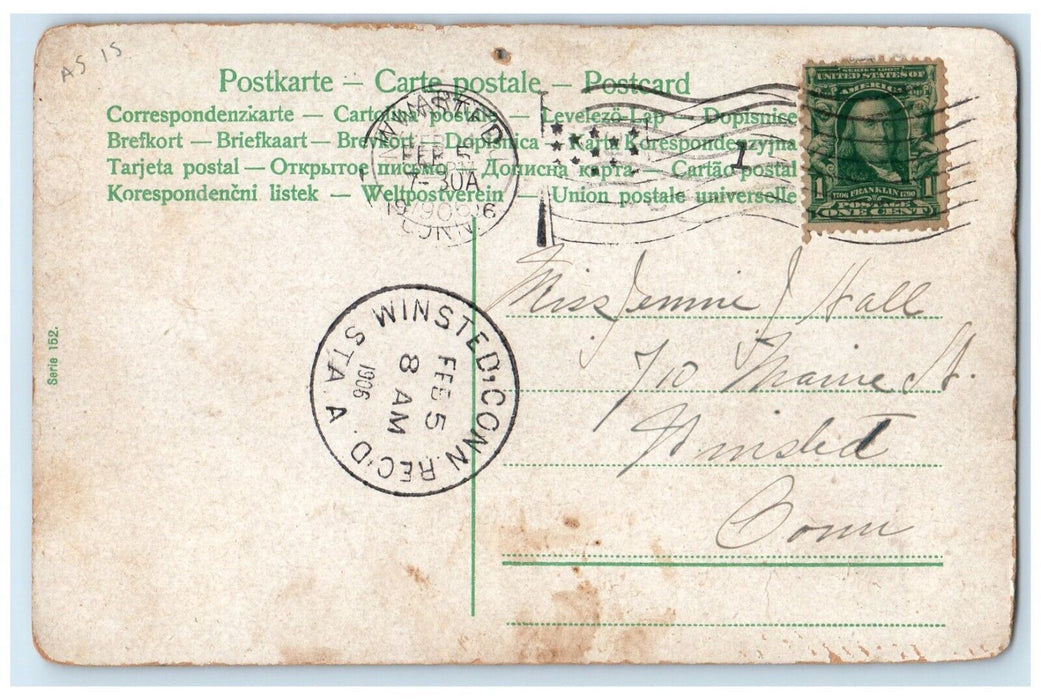 AS IS
Postkarte – Carte postale – Postcard
Correspondenzkarte – Cartolina postale – Levelező-Lap – Dopisnice
Brefkort – Briefkaart – Brevkort – Dopisnica – Karta Korespondenzyjna
Tarjeta postal – Открытое письмо – Дописна карта – Cartão postal
Korespondenční listek – Weltpostverein – Union postale universelle
WINSTED
FEB 5
7-30A
1906
CONN.
1
SERIES 1902
UNITED STATES OF
AMERICA
1 1706 FRANKLIN 1790 1
POSTAGE
ONE CENT
Miss Jennie J Hall
710 Maine St.
Winsted
Conn
WINSTED, CONN. REC'D.
STA. A
FEB 5
8 AM
1906
Serie 152.